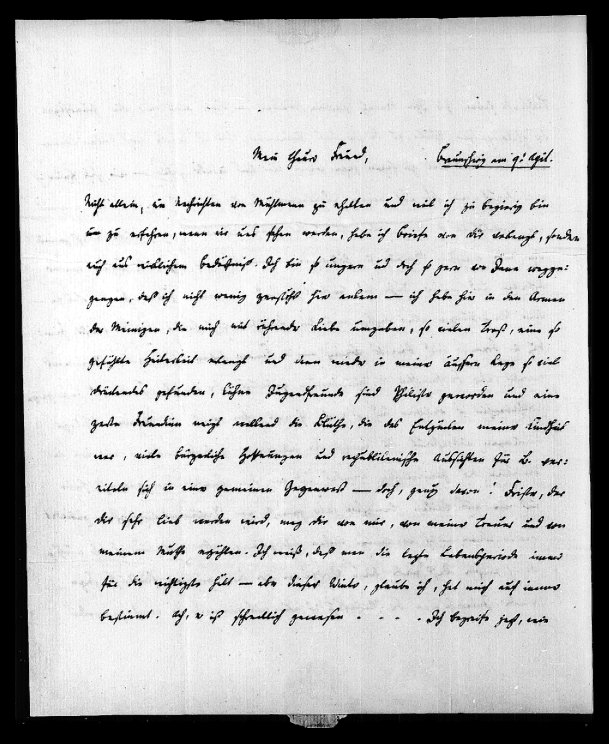 Mein theurer Freund, Braunschweig am 9t April.
Nicht allein, um Nachrichten von Muhrmann zu erhalten und weil ich zu begierig bin
um zu erfahren, wann wir uns sehen werden, habe ich Briefe von Dir verlangt, sondern
auch aus wirklichem Bedürfniß. Ich bin so ungern und doch so gern von Jena wegge-
gangen, daß ich nicht wenig hier ankam — ich habe hier in den Armen
der Meinigen, die mich mit Liebe umgaben, so vielen Trost, eine so
Heiterkeit erlangt und dann wieder in meiner äußern Lage so viel
drückendes gefunden, Jugendfreunde sind Philister geworden und eine
zarte Freundin neigt welkend die Blüthe, die das Entzücken meiner Kindheit
war, viele bürgerliche Hoffnungen und republikanische Aussichten für B. ver-
eiteln sich in einer gemeinen Gegenwart — doch, genug davon! Förster, der
Dir sehr lieb werden wird, mag Dir von mir, von meiner Trauer und von
meinem Muthe erzählen. Ich weiß, daß man die letzte Lebensperiode immer
für die wichtigste hält — aber dieser Winter, glaube ich, hat mich auf immer
bestimmt. Ach, es ist schrecklich gewesen - - - - Ich begreife jetzt, wie